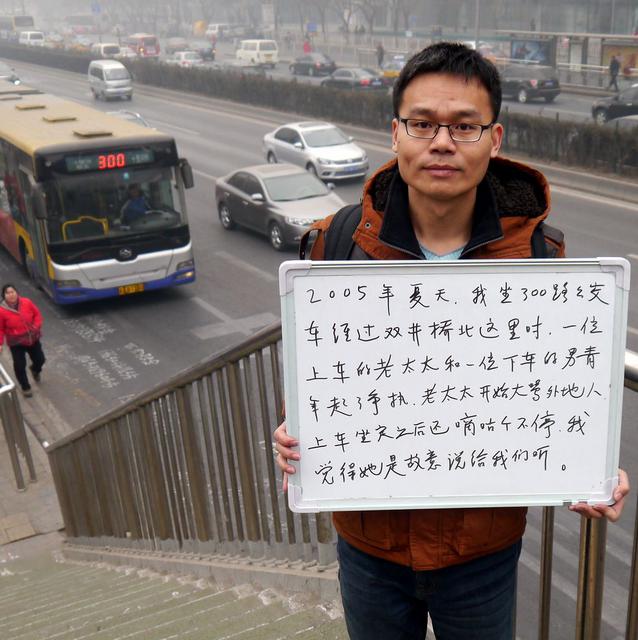 300
2005年夏天，我坐300路公交
车经过双井桥北这里时，一位
上车的老太太和一位下车的男青
年起了争执，老太太开始大骂外地人
上车坐定之后还嘀咕个不停，我
觉得她是故意说给我们听。